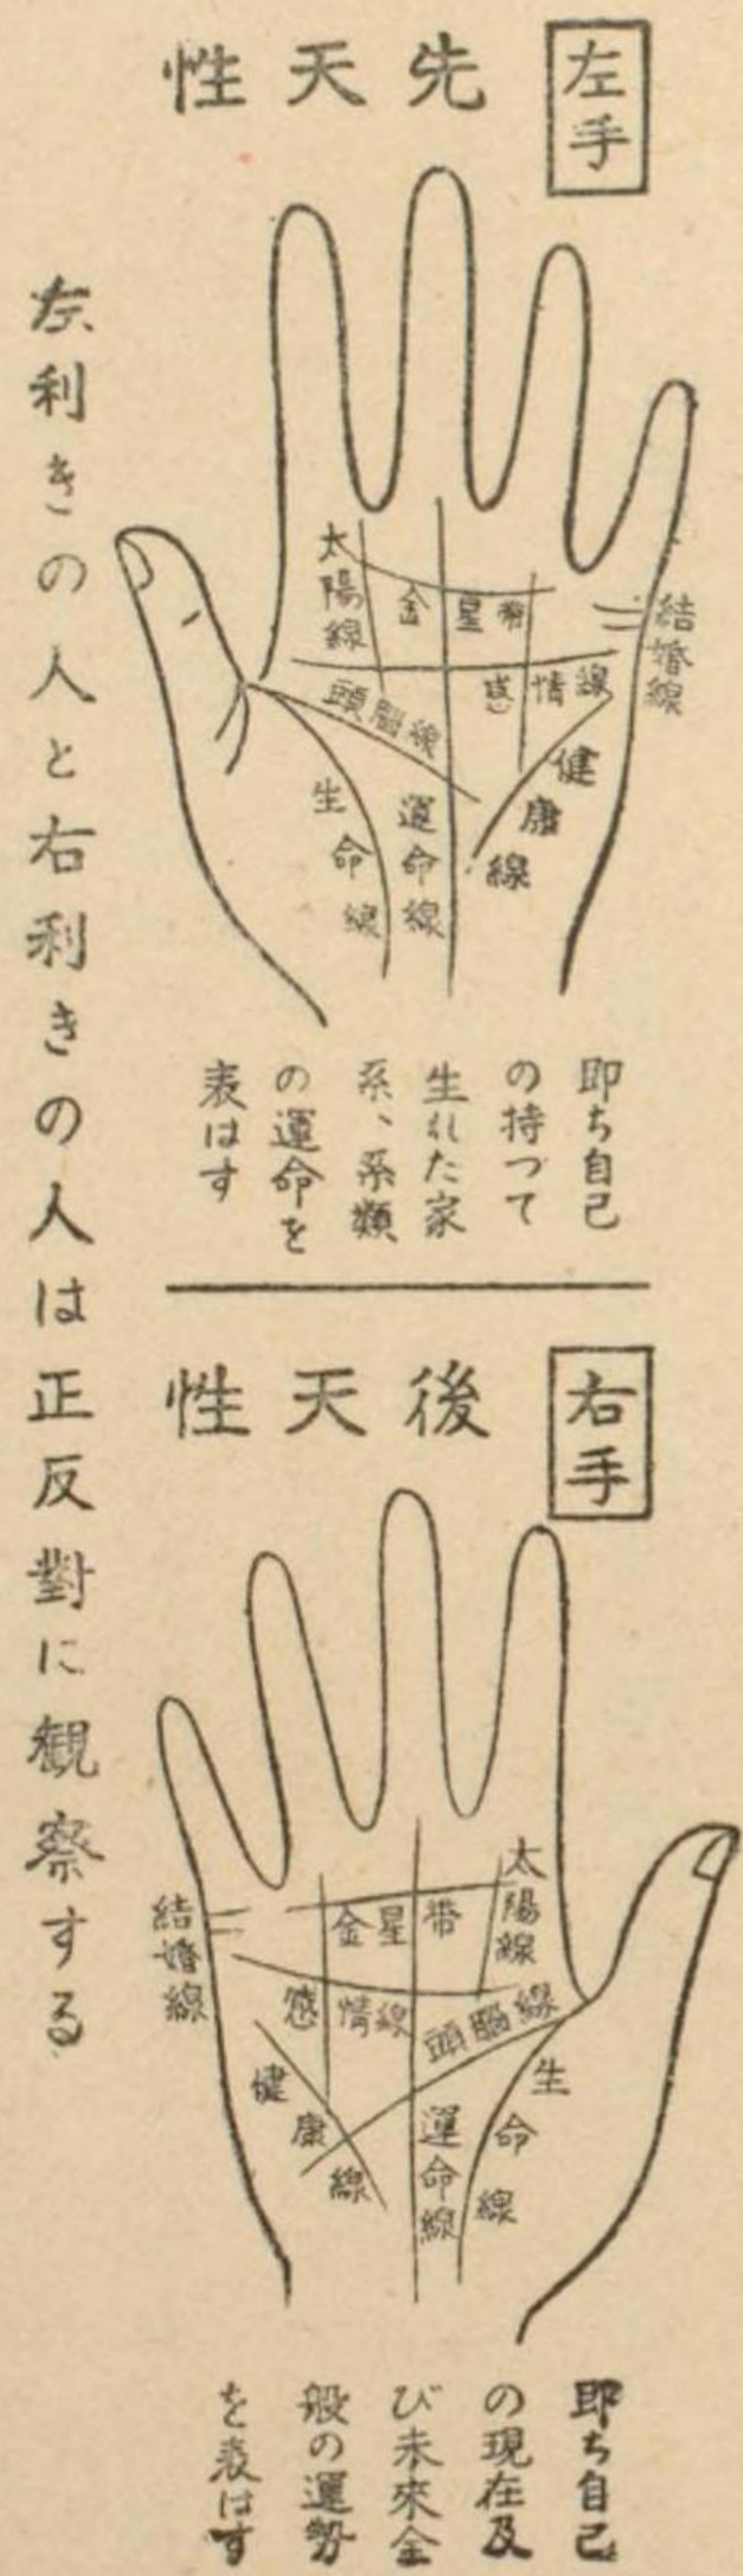 左手
先天性
太陽線
金星帯
結婚線
感情線
頭脳線
健康線
生命線
運命線
即ち自己
の持つて
生れた家
系、系類
の運命を
表はす
右手
後天性
太陽線
金星帯
結婚線
感情線
頭脳線
健康線
生命線
運命線
即ち自己
の現在及
び未來全
般の運勢
を表はす
左利きの人と右利きの人は正反對に観察する